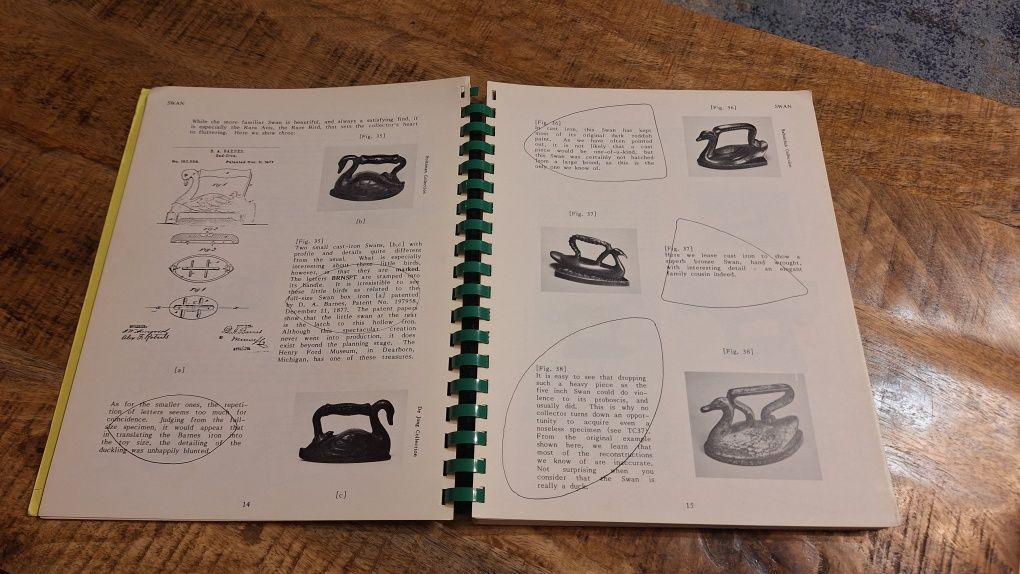 SWAN
While the more familiar Swan is beautiful, and always a satisfying find, it
is especially the Rara Avis, the Rare Bird, that sets the collector's heart
to fluttering. Here we show three:
[Fig. 35]
D. A. BARNES.
Sad-Iron.
Patented Dec. 11, 1877.
Fig 1
[b]
Collection
[Fig. 35]
Two small cast-iron Swans, [b,c] with
profile and details quite different
from the usual. What is especially
interesting about these little birds,
however, is that they are marked.
The letters BRNSPT are stamped into
its handle. It is irresistible to see
these little birds as related to the
full-size Swan box iron [a] patented
by D. A. Barnes, Patent No. 197958,
December 11, 1877. The patent papers
show that the little swan at the rear
is the latch to this hollow iron.
Although this spectacular creation
never went into production, it does
exist beyond the planning stage. The
Henry Ford Museum, in Dearborn,
Michigan, has one of these treasures.
[a]
As for the smaller ones, the repeti-
tion of letters seems too much for
coincidence. Judging from the full-
size specimen, it would appear that
in translating the Barnes iron into
the toy size, the detailing of the
duckling was unhappily blunted.
Collection
[c]
14
[Fig. 36]
SWAN
[Fig. 36]
In cast iron, this Swan has kept
most of its original dark reddish
paint. As we have often pointed
out, it is not likely that a cast
piece would be one-of-a-kind, but
this Swan was certainly not hatched
from a large brood, as this is the
only one we know of.
Collection
[Fig. 37]
[Fig. 37]
Here we leave cast iron to show a
superb bronze Swan, hand wrought,
with interesting detail - an elegant
family cousin indeed.
[Fig. 38]
[Fig. 38]
It is easy to see that dropping
such a heavy piece as the
five inch Swan could do vio-
lence to its proboscis, and
usually did. This is why no
collector turns down an oppor-
tunity to acquire even a
noseless specimen (see TC37).
From the original example
shown here, we learn that
most of the reconstructions
we know of are inaccurate.
Not surprising when you
consider that the Swan is
really a duck.
15